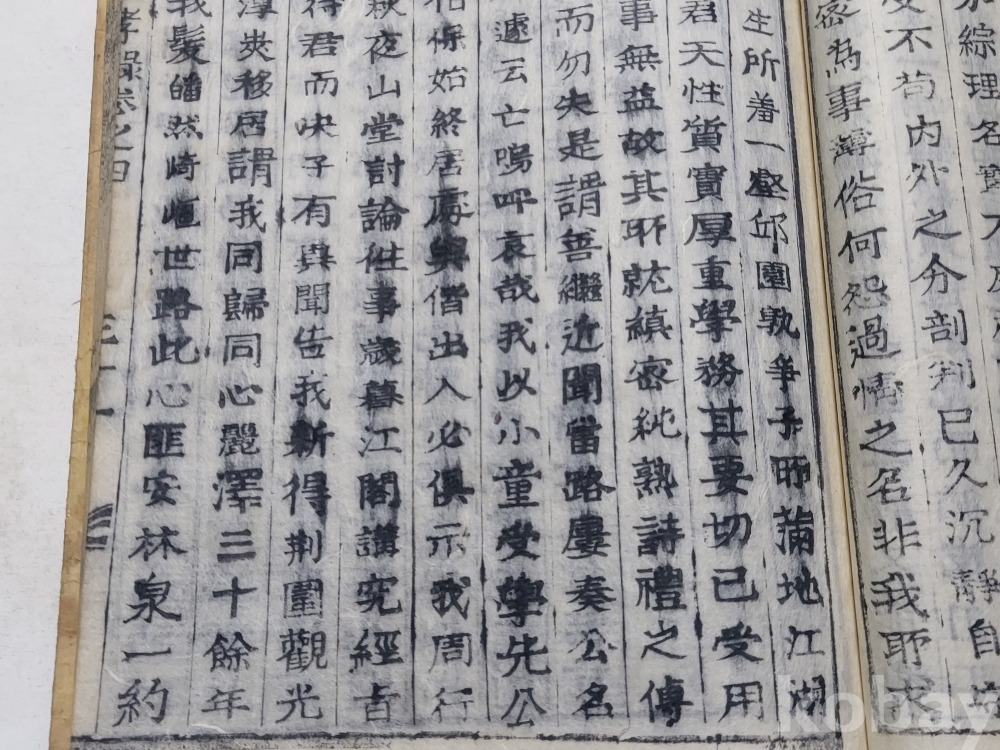 綜理名實不
受不苟內外之分剖判已久沉靜自
密爲事薄俗何怨過情之名非我所求
生所着一壑邱園孰爭子所滿地江湖
君天性質實厚重學務其要切已受用
事無益故其所就縝密純熟詩禮之傳
而勿失是謂善繼近聞當路屢奏公名
遽云亡嗚呼哀哉我以小童受學先公
相保始終居處與偕出入必俱示我周行
秋夜山堂討論性事歲暮江閣講究經旨
得君而快子有異聞告我新得荆圍觀光
淳夾移居謂我同歸同心麗澤三十餘年
我髮皤然崎嶇世路此心匪安林泉一約
孝錄卷之四
三十一
kobay